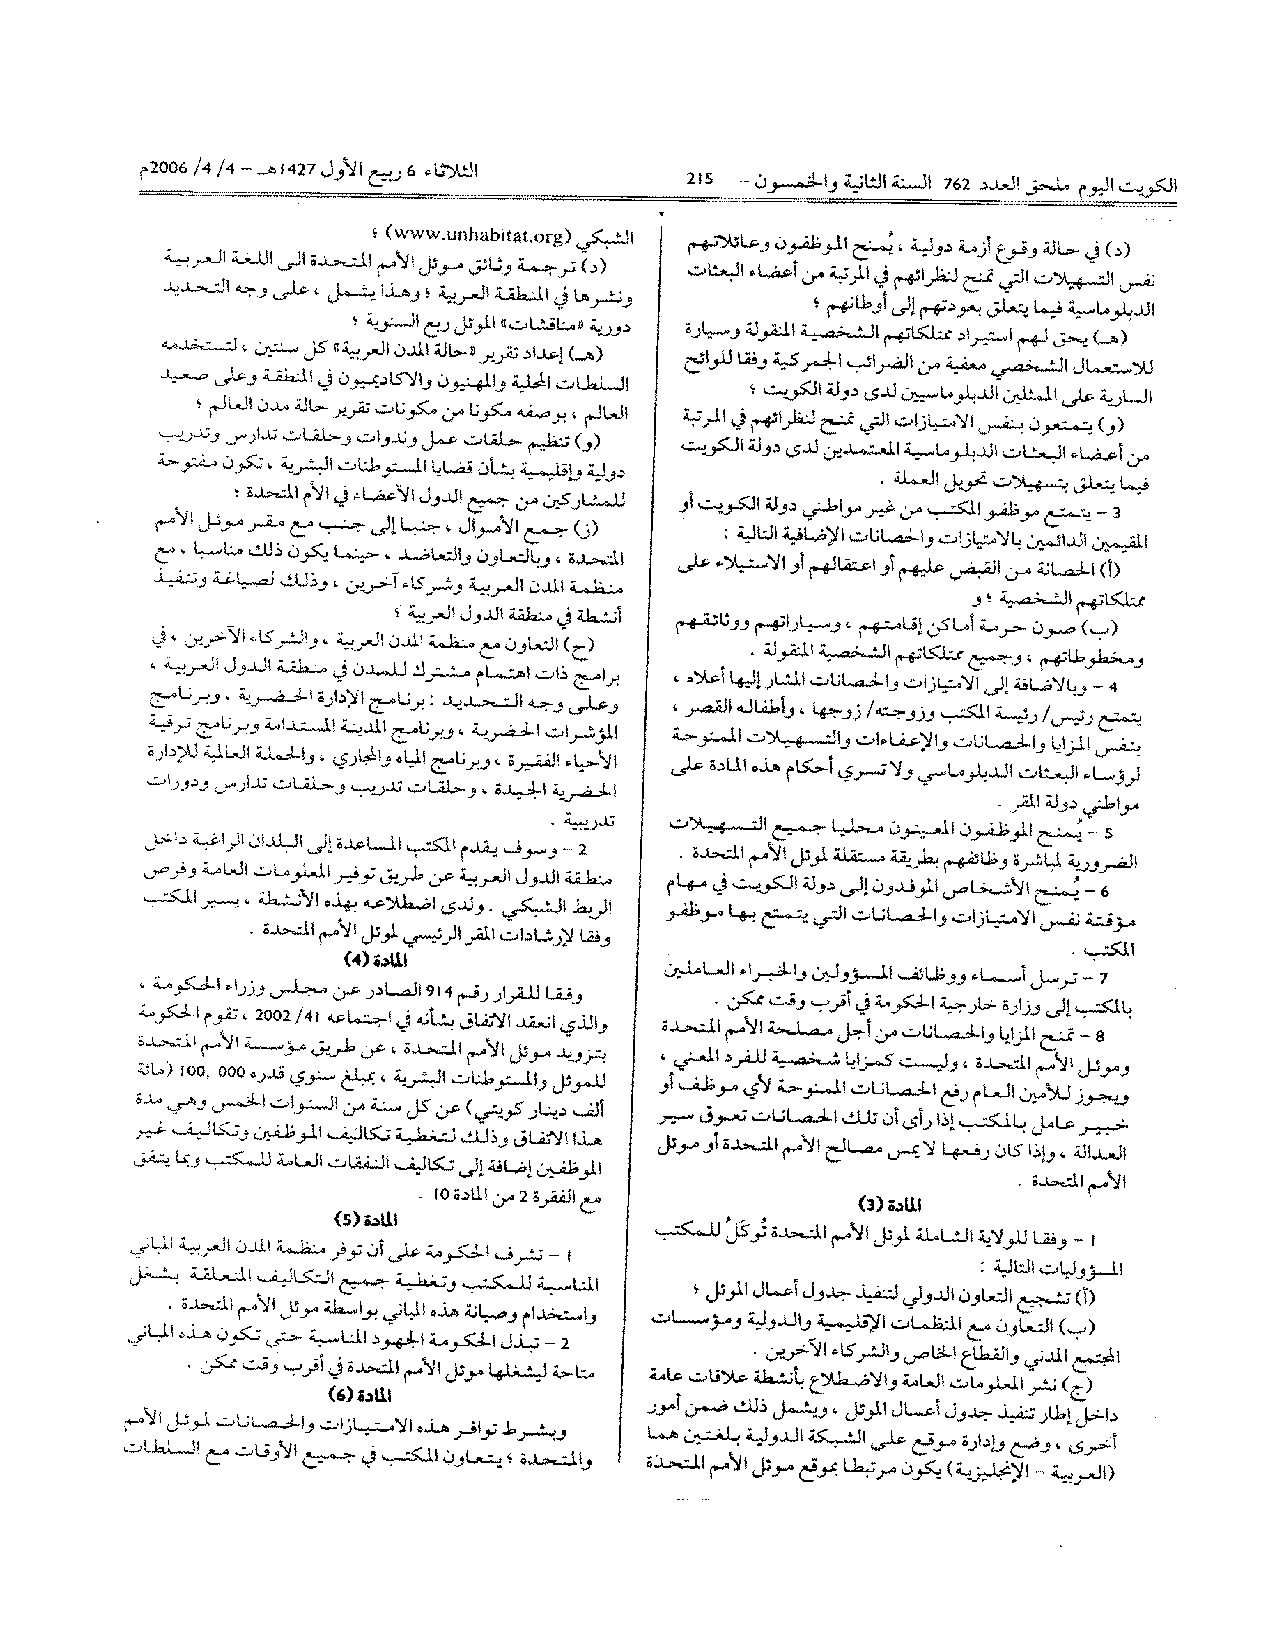 الكويت اليوم ملحق العدد 762 السنة الثانية والخمسون – 215
الثلاثاء 6 ربيع الأول 1427هـ – 4 /4 /2006م
(د) في حالة وقوع أزمة دولية ، يُمنح الموظفون وعائلاتهم
نفس التسهيلات التي تمنح لنظرائهم في المرتبة من أعضاء البعثات
الدبلوماسية فيما يتعلق بعودتهم إلى أوطانهم ؛
(هـ) يحق لهم استيراد ممتلكاتهم الشخصية المنقولة وسيارة
للاستعمال الشخصي معفية من الضرائب الجمركية وفقا للوائح
السارية على الممثلين الدبلوماسيين لدى دولة الكويت ؛
(و) يتمتعون بنفس الامتيازات التي تمنح لنظرائهم في المرتبة
من أعضاء البعثات الدبلوماسية المعتمدين لدى دولة الكويت
فيما يتعلق بتسهيلات تحويل العملة .
3 – يتمتع موظفو المكتب من غير مواطني دولة الكويت أو
المقيمين الدائمين بالامتيازات والحصانات الإضافية التالية :
(أ) الحصانة من القبض عليهم أو اعتقالهم أو الاستيلاء على
ممتلكاتهم الشخصية ؛ و
(ب) صون حرمة أماكن إقامتهم ، وسياراتهم ووثائقهم
ومخطوطاتهم ، وجميع ممتلكاتهم الشخصية المنقولة .
4 – وبالاضافة إلى الامتيازات والحصانات المشار إليها أعلاه ،
يتمتع رئيس/ رئيسة المكتب وزوجته/ زوجها ، وأطفاله القصر ،
بنفس المزايا والحصانات والإعفاءات والتسهيلات الممنوحة
لرؤساء البعثات الدبلوماسي ولا تسري أحكام هذه المادة على
مواطني دولة المقر .
5 – يُمنح الموظفون المعينون محليا جميع التسهيلات
الضرورية لمباشرة وظائفهم بطريقة مستقلة لموئل الأمم المتحدة .
6 – يُمنح الأشخاص الموفدون إلى دولة الكويت في مهام
مؤقتة نفس الامتيازات والحصانات التي يتمتع بها موظفو
المكتب .
7 – ترسل أسماء ووظائف المسؤولين والخبراء العاملين
بالمكتب إلى وزارة خارجية الحكومة في أقرب وقت ممكن .
8 – تمنح المزايا والحصانات من أجل مصلحة الأمم المتحدة
وموئل الأمم المتحدة ، وليست كمزايا شخصية للفرد المعني ،
ويجوز للأمين العام رفع الحصانات الممنوحة لأي موظف أو
خبير عامل بالمكتب إذا رأى أن تلك الحصانات تعوق سير
العدالة ، وإذا كان رفعها لا يمس مصالح الأمم المتحدة أو موئل
الأمم المتحدة .
المادة (3)
1 – وفقا للولاية الشاملة لموئل الأمم المتحدة تُوكَلُ للمكتب
المسؤوليات التالية :
(أ) تشجيع التعاون الدولي لتنفيذ جدول أعمال الموئل ؛
(ب) التعاون مع المنظمات الإقليمية والدولية ومؤسسات
المجتمع المدني والقطاع الخاص والشركاء الآخرين .
(ج) نشر المعلومات العامة والاضطلاع بأنشطة علاقات عامة
داخل إطار تنفيذ جدول أعمال الموئل ، ويشمل ذلك ضمن أمور
أخرى ، وضع وإدارة موقع على الشبكة الدولية بلغتين هما
(العربية – الإنجليزية) يكون مرتبطا بموقع موئل الأمم المتحدة
الشبكي (www.unhabitat.org) ؛
(د) ترجمة وثائق موئل الأمم المتحدة الى اللغة العربية
ونشرها في المنطقة العربية ؛ وهذا يشمل ، على وجه التحديد
دورية «مناقشات» الموئل ربع السنوية ؛
(هـ) إعداد تقرير «حالة المدن العربية» كل سنتين ، لتستخدمه
السلطات المحلية والمهنيون والاكاديميون في المنطقة وعلى صعيد
العالم ، بوصفه مكونا من مكونات تقرير حالة مدن العالم ؛
(و) تنظيم حلقات عمل وندوات وحلقات تدارس وتدريب
دولية وإقليمية بشأن قضايا المستوطنات البشرية ، تكون مفتوحة
للمشاركين من جميع الدول الأعضاء في الأم المتحدة ؛
(ز) جمع الأموال ، جنبا إلى جنب مع مقر موئل الأمم
المتحدة ، وبالتعاون والتعاضد ، حينما يكون ذلك مناسبا ، مع
منظمة المدن العربية وشركاء آخرين ، وذلك لصياغة وتنفيذ
أنشطة في منطقة الدول العربية ؛
(ح) التعاون مع منظمة المدن العربية ، والشركاء الآخرين ، في
برامج ذات اهتمام مشترك للمدن في منطقة الدول العربية ،
وعلى وجه التحديد : برنامج الإدارة الحضرية ، وبرنامج
المؤشرات الحضرية ، وبرنامج المدينة المستدامة وبرنامج ترقية
الأحياء الفقيرة ، وبرنامج المياه والمجاري ، والحملة العالمية للإدارة
الحضرية الجيدة ، وحلقات تدريب وحلقات تدارس ودورات
تدريبية .
2 – وسوف يقدم المكتب المساعدة إلى البلدان الراغبة داخل
منطقة الدول العربية عن طريق توفير المعلومات العامة وفرص
الربط الشبكي . ولدى اضطلاعه بهذه الأنشطة ، يسير المكتب
وفقا لإرشادات المقر الرئيسي لموئل الأمم المتحدة .
المادة (4)
وفقا للقرار رقم 914 الصادر عن مجلس وزراء الحكومة ،
والذي انعقد الاتفاق بشأنه في اجتماعه 41/ 2002 ، تقوم الحكومة
بتزويد موئل الأمم المتحدة ، عن طريق مؤسسة الأمم المتحدة
للموئل والمستوطنات البشرية ، بمبلغ سنوي قدره 000 ,100 (مائة
ألف دينار كويتي) عن كل سنة من السنوات الخمس وهي مدة
هذا الاتفاق وذلك لتغطية تكاليف الموظفين وتكاليف غير
الموظفين إضافة إلى تكاليف النفقات العامة للمكتب وبما يتفق
مع الفقرة 2 من المادة 10 .
المادة (5)
1 – تشرف الحكومة على أن توفر منظمة المدن العربية المباني
المناسبة للمكتب وتغطية جميع التكاليف المتعلقة بشغل
واستخدام وصيانة هذه المباني بواسطة موئل الأمم المتحدة .
2 – تبذل الحكومة الجهود المناسبة حتى تكون هذه المباني
متاحة ليشغلها موئل الأمم المتحدة في أقرب وقت ممكن .
المادة (6)
ويشرط توافر هذه الامتيازات والحصانات لموئل الأمم
والمتحدة ؛ يتعاون المكتب في جميع الأوقات مع السلطات